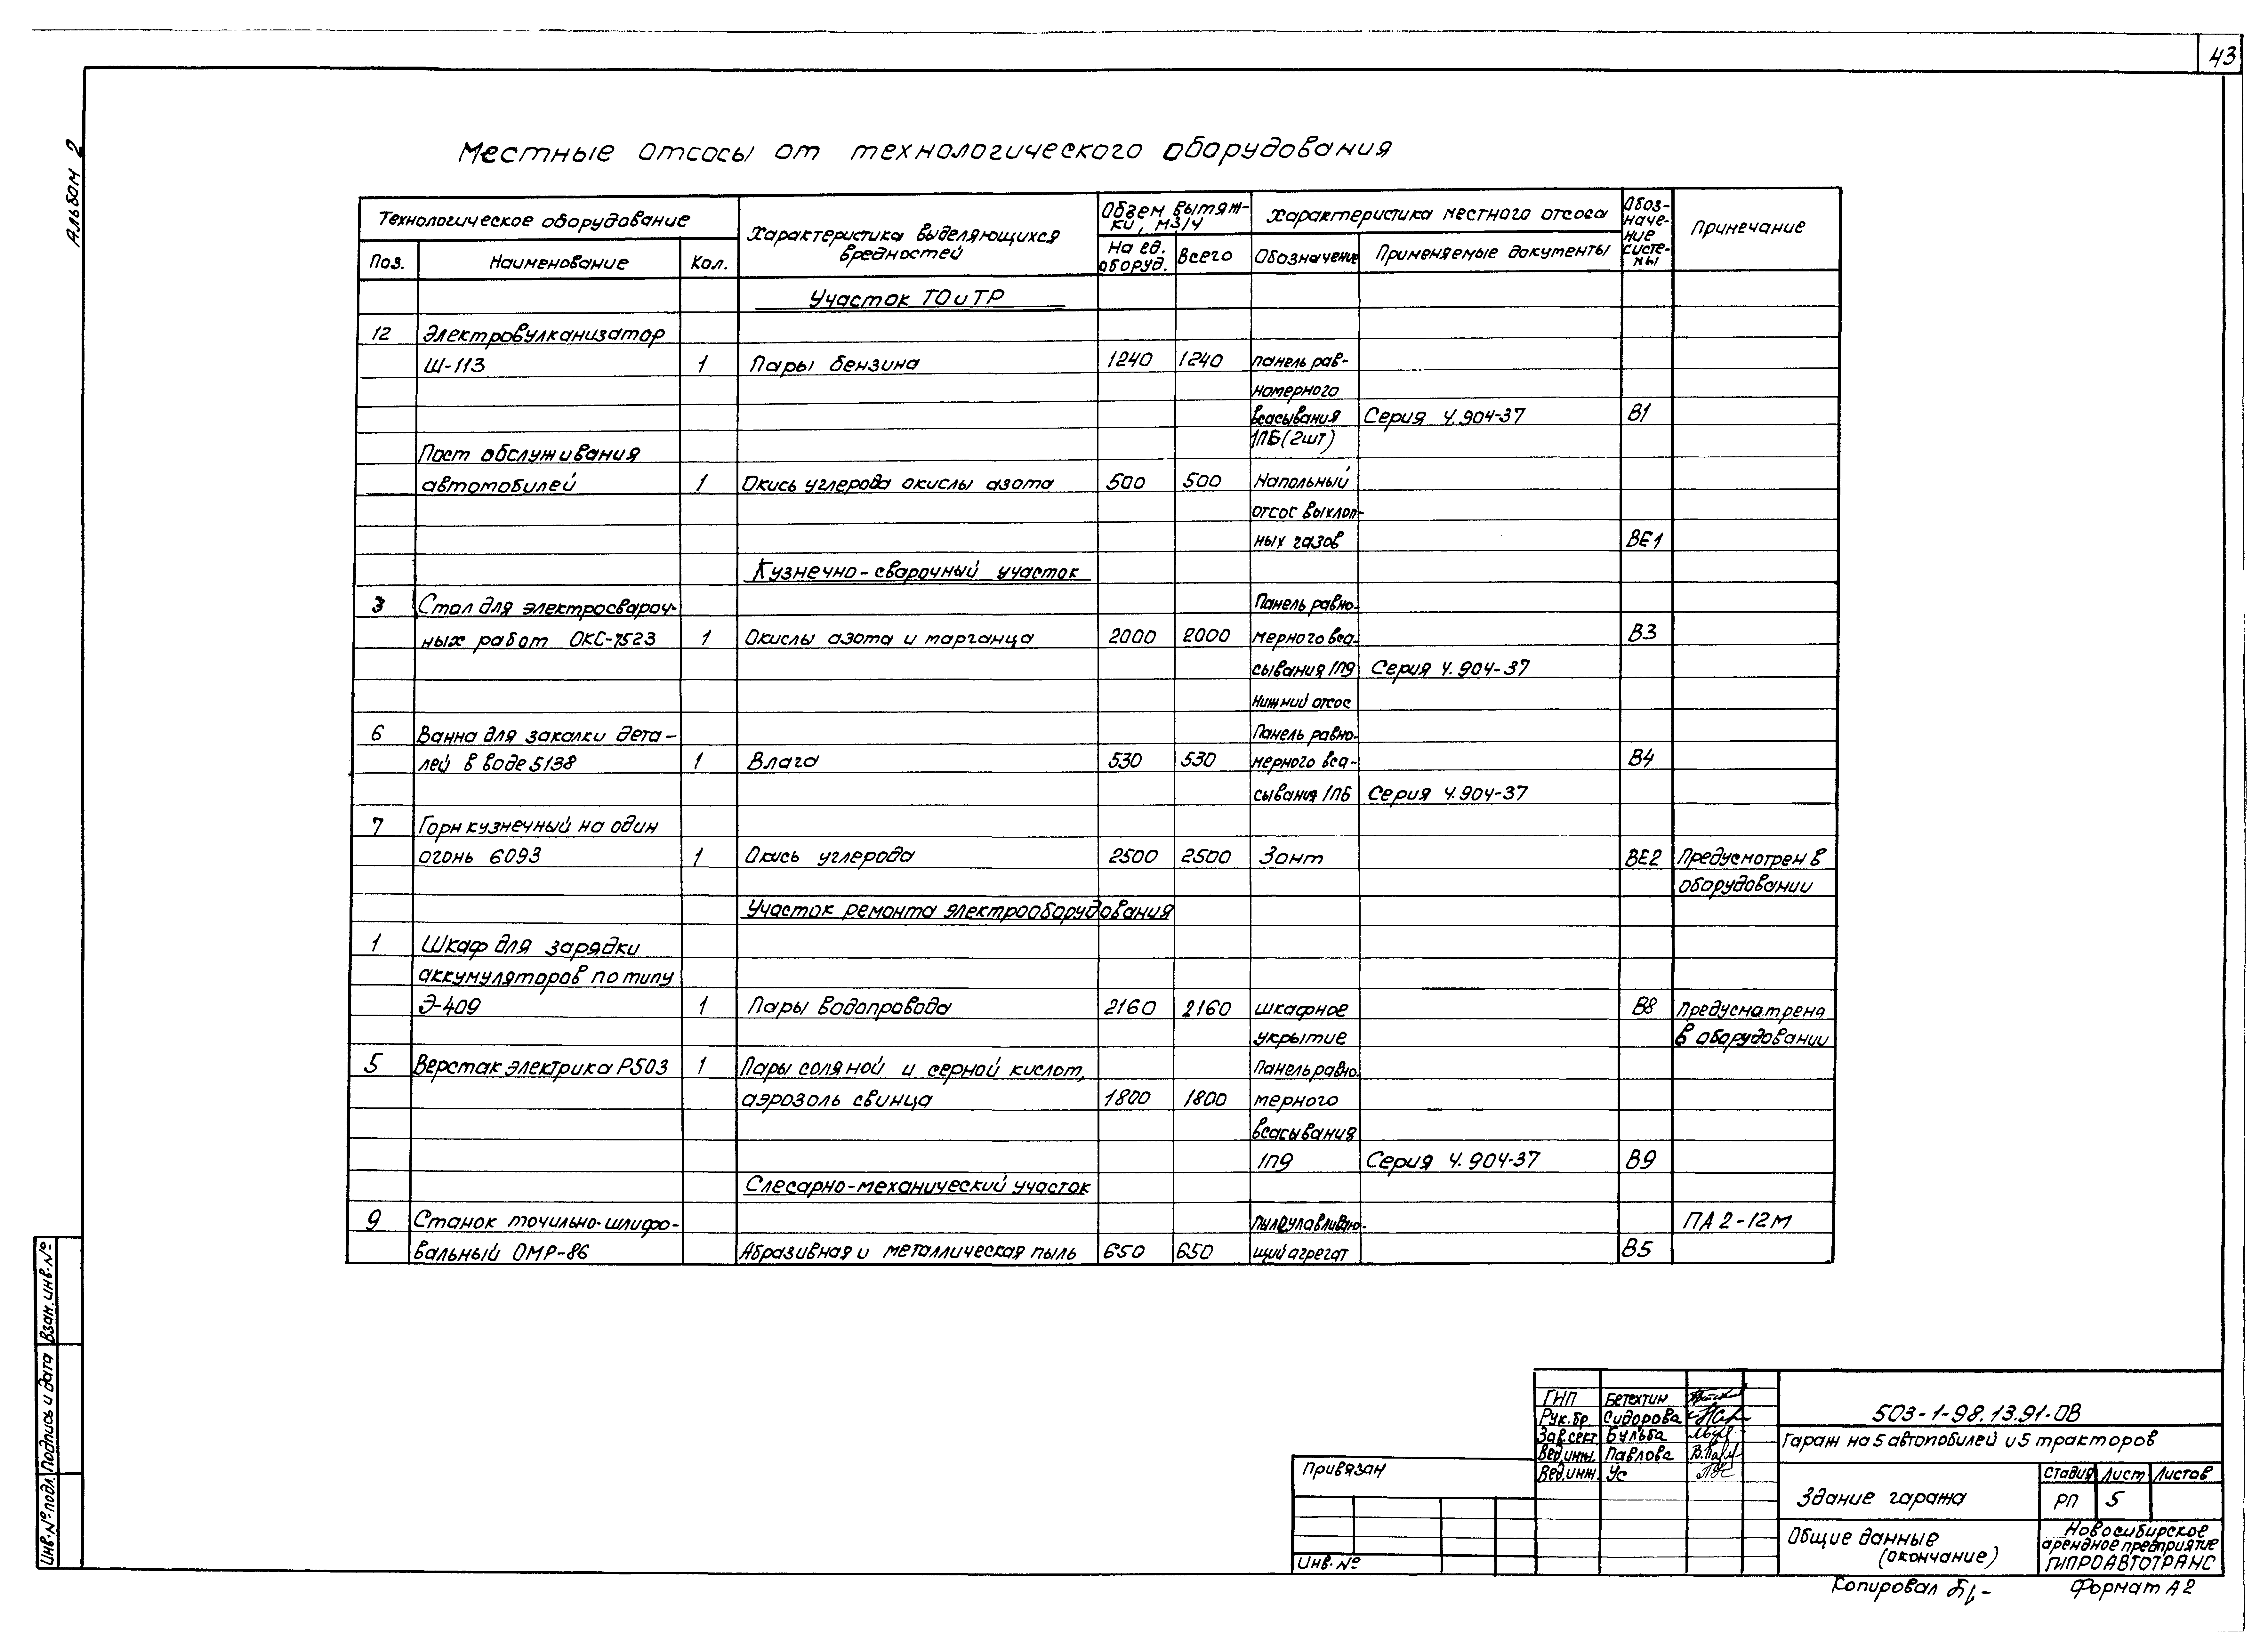 43
Альбом 2
Местные отсосы от технологического оборудования
Технологическое оборудование
Характеристика выделяющихся вредностей
Объем вытяж-
ки, м3/ч
Характеристика местного отсоса
Обоз-
наче-
ние
систе-
мы
Примечание
Поз. Наименование Кол.
На ед. оборуд. Всего Обозначение Применяемые документы
Участок ТО и ТР
12 Электровулканизатор
Ш-113 1 Пары бензина 1240 1240 панель рав-
номерного
всасывания Серия 4.904-37 В1
1ПБ (2шт)
Пост обслуживания
автомобилей 1 Окись углерода окислы азота 500 500 Напольный
отсос выхлоп-
ных газов ВЕ1
Кузнечно-сварочный участок
3 Стол для электросвароч- Панель равно-
ных работ ОКС-7523 1 Окислы азота и марганца 2000 2000 мерного вса- В3
сывания 1П9 Серия 4.904-37
Нижний отсос
6 Ванна для закалки дета- Панель равно-
лей в воде 5138 1 Влага 530 530 мерного вса- В4
сывания 1ПБ Серия 4.904-37
7 Горн кузнечный на один
огонь 6093 1 Окись углерода 2500 2500 Зонт ВЕ2 Предусмотрен в
оборудовании
Участок ремонта электрооборудования
1 Шкаф для зарядки
аккумуляторов по типу
Э-409 1 Пары водопровода 2160 2160 шкафное В8 Предусматрена
укрытие в оборудовании
5 Верстак электрика Р503 1 Пары соляной и серной кислот, Панель равно-
аэрозоль свинца 1800 1800 мерного
всасывания
1П9 Серия 4.904-37 В9
Слесарно-механический участок
9 Станок точильно-шлифо- Пылеулавливаю- ПА2-12М
вальный ОМР-86 Абразивная и металлическая пыль 650 650 щий агрегат В5
Инв.№ подл. Подпись и дата Взам. инв.№
Привязан
Инв.№
ГИП Бетехтин
Рук.бр. Сидорова
Зав.сект. Бульба
Вед.инж. Павлова
Вед.инж. Ус
503-1-98.13.91-ОВ
Гараж на 5 автомобилей и 5 тракторов
Здание гаража
Стадия Лист Листов
РП 5
Общие данные
(окончание)
Новосибирское
арендное предприятие
ГИПРОАВТОТРАНС
Копировал
Формат А2